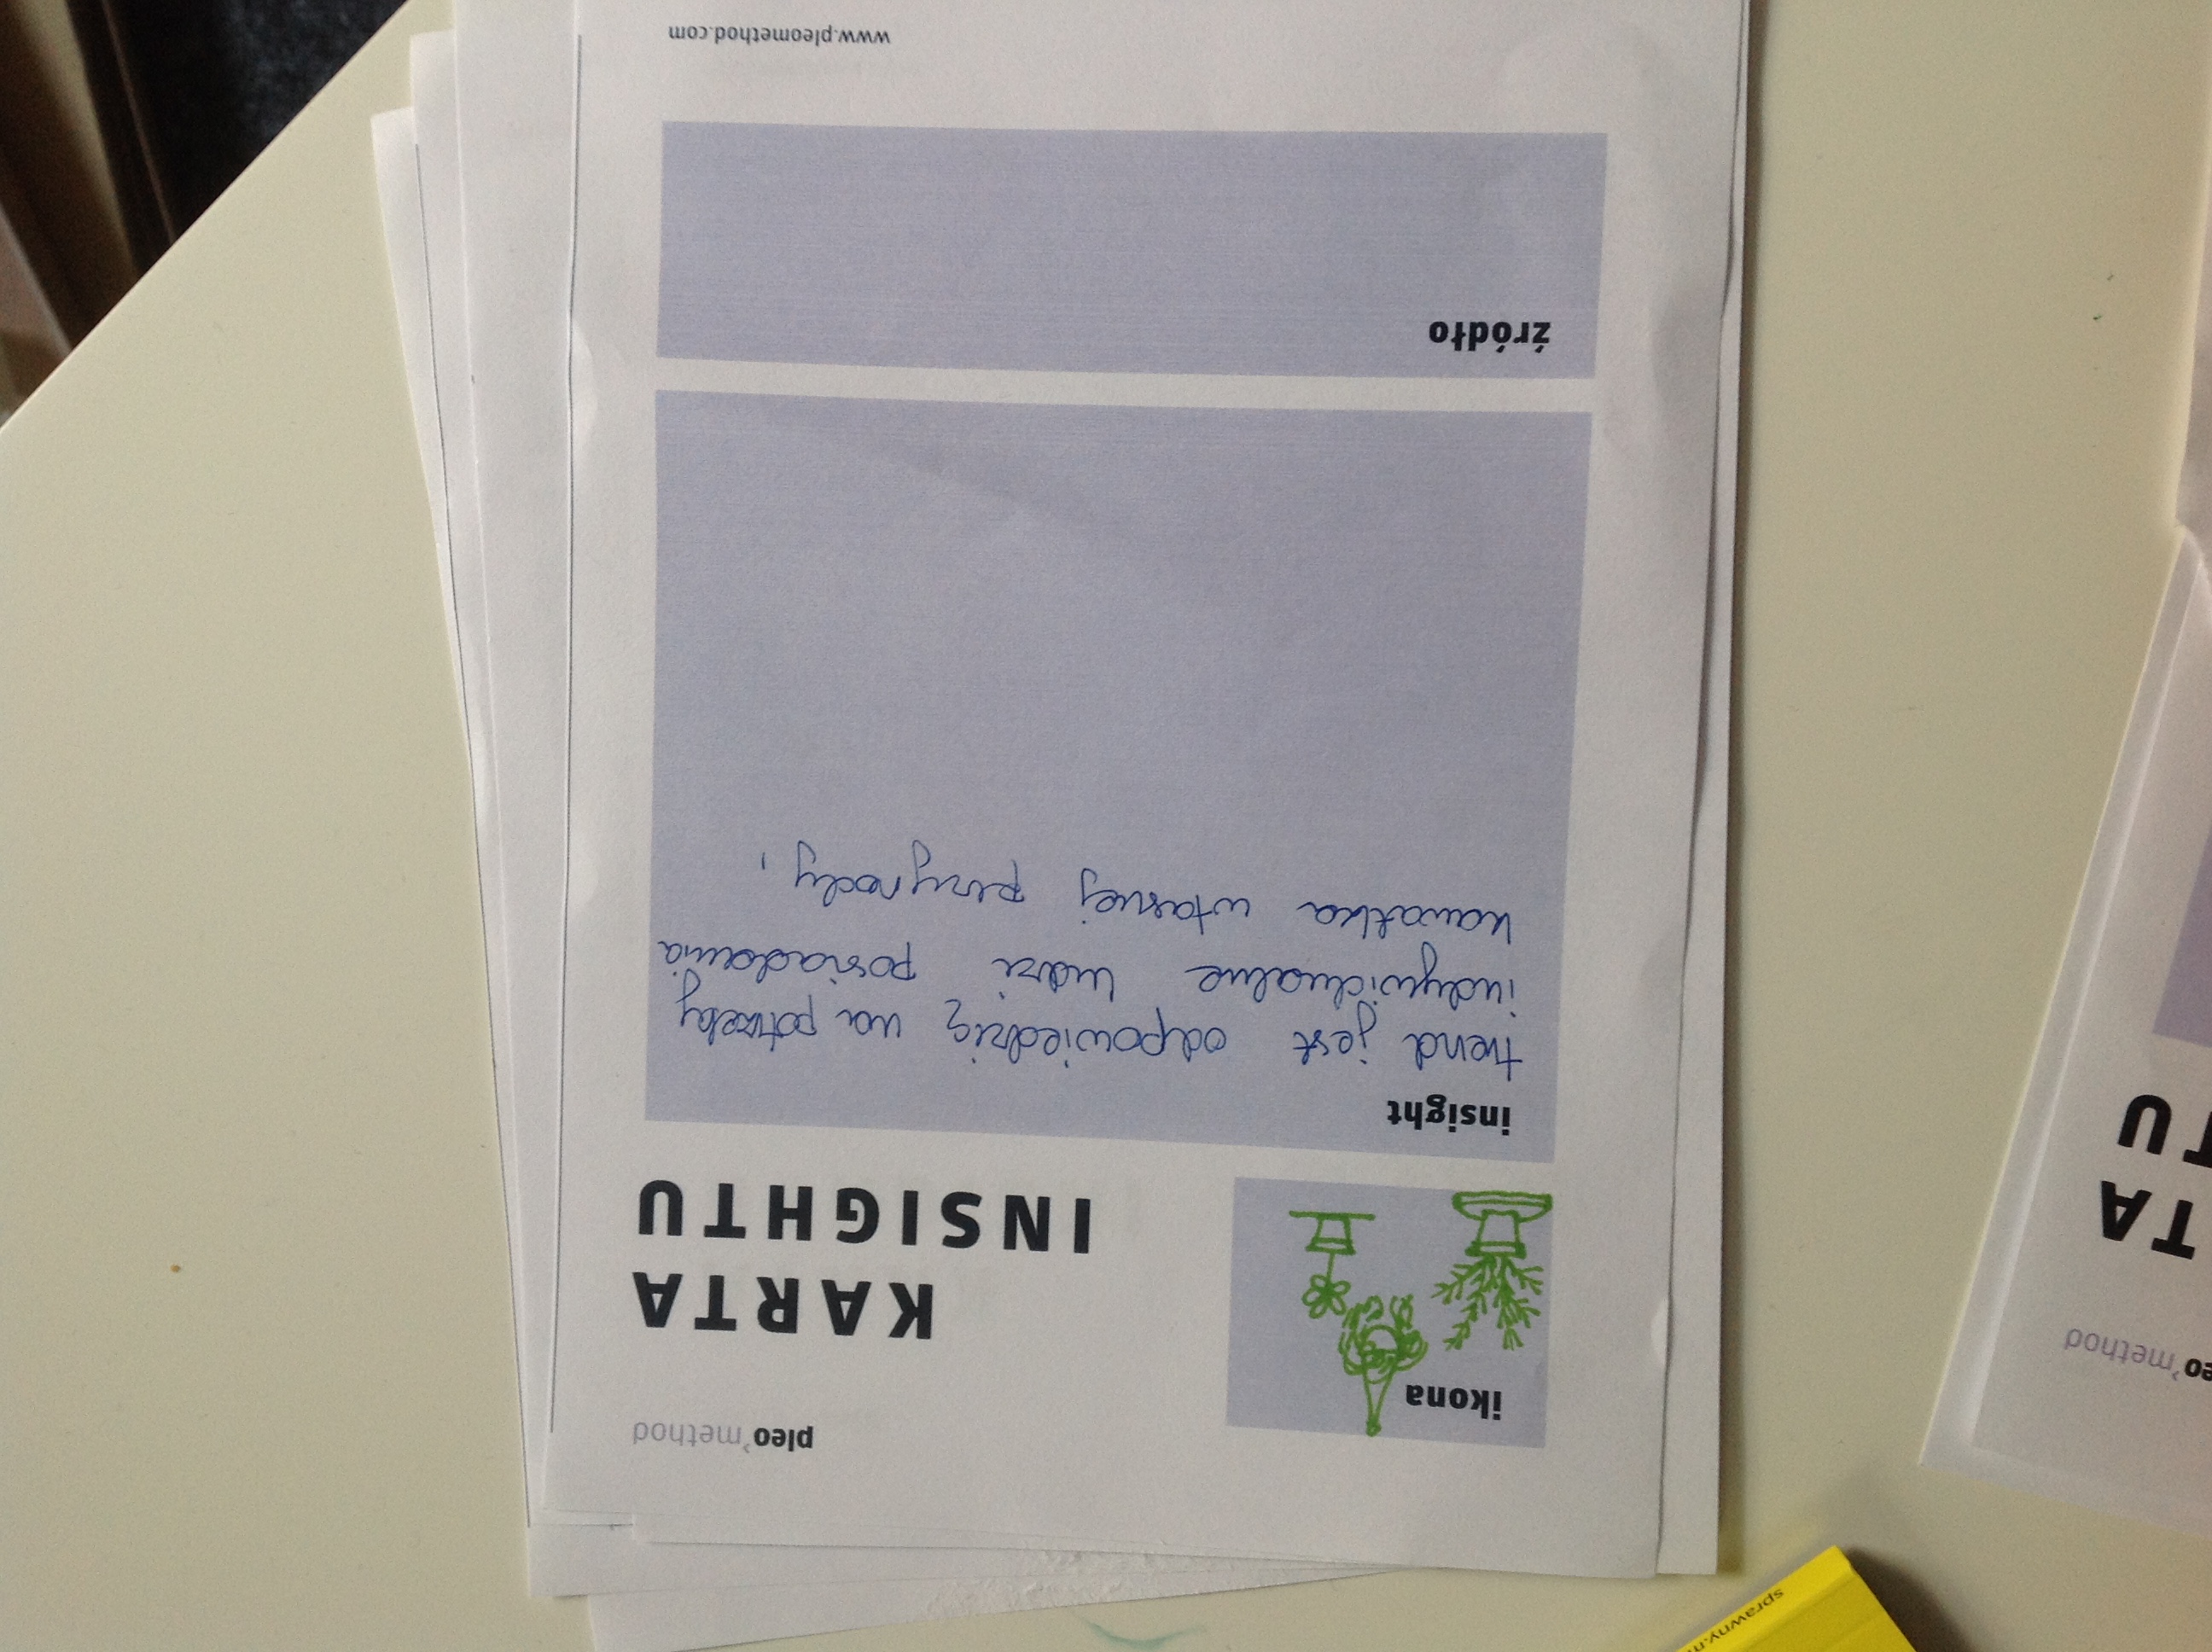 sprawny.m
eo’method
TA
TU
pleo’method
ikona
KARTA
INSIGHTU
insight
trend jest odpowiedzią na potrzeby
indywidualne ludzi posiadania
kawałka własnej przyrody,
źródło
www.pleomethod.com